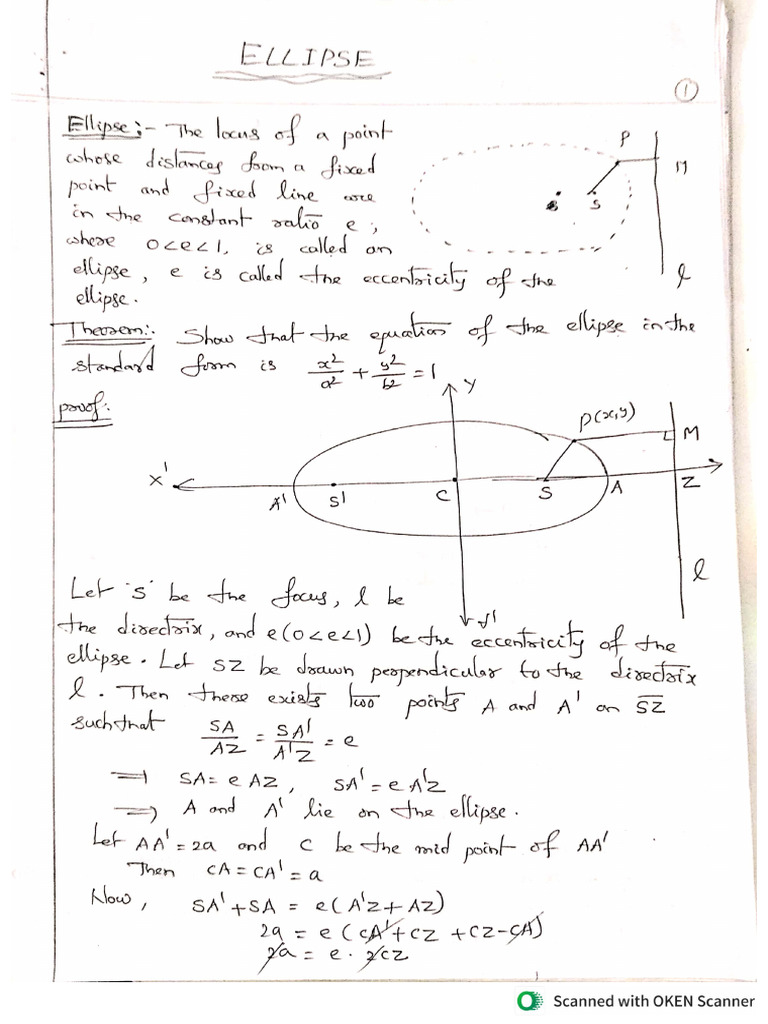 ELLIPSE
1
Ellipse:- The locus of a point
whose distances from a fixed
point and fixed line are
in the constant ratio e,
where 0<e<1, is called an
ellipse, e is called the eccentricity of the
ellipse.
P
M
S
l
Theorem:- Show that the equation of the ellipse in the
standard form is x²/a² + y²/b² = 1
proof:
Y
P(x,y)
M
X'
A'
S'
C
S
A
Z
l
Y'
Let 'S' be the focus, l be
the directrix, and e(0<e<1) be the eccentricity of the
ellipse. Let SZ be drawn perpendicular to the directrix
l. Then there exists two points A and A' on SZ
such that SA/AZ = SA'/A'Z = e
⇒ SA = e AZ, SA' = e A'Z
⇒ A and A' lie on the ellipse.
Let AA' = 2a and C be the mid point of AA'
Then CA = CA' = a
Now, SA' + SA = e(A'Z + AZ)
2a = e(CA' + CZ + CZ - CA)
2a = e. 2CZ
Scanned with OKEN Scanner